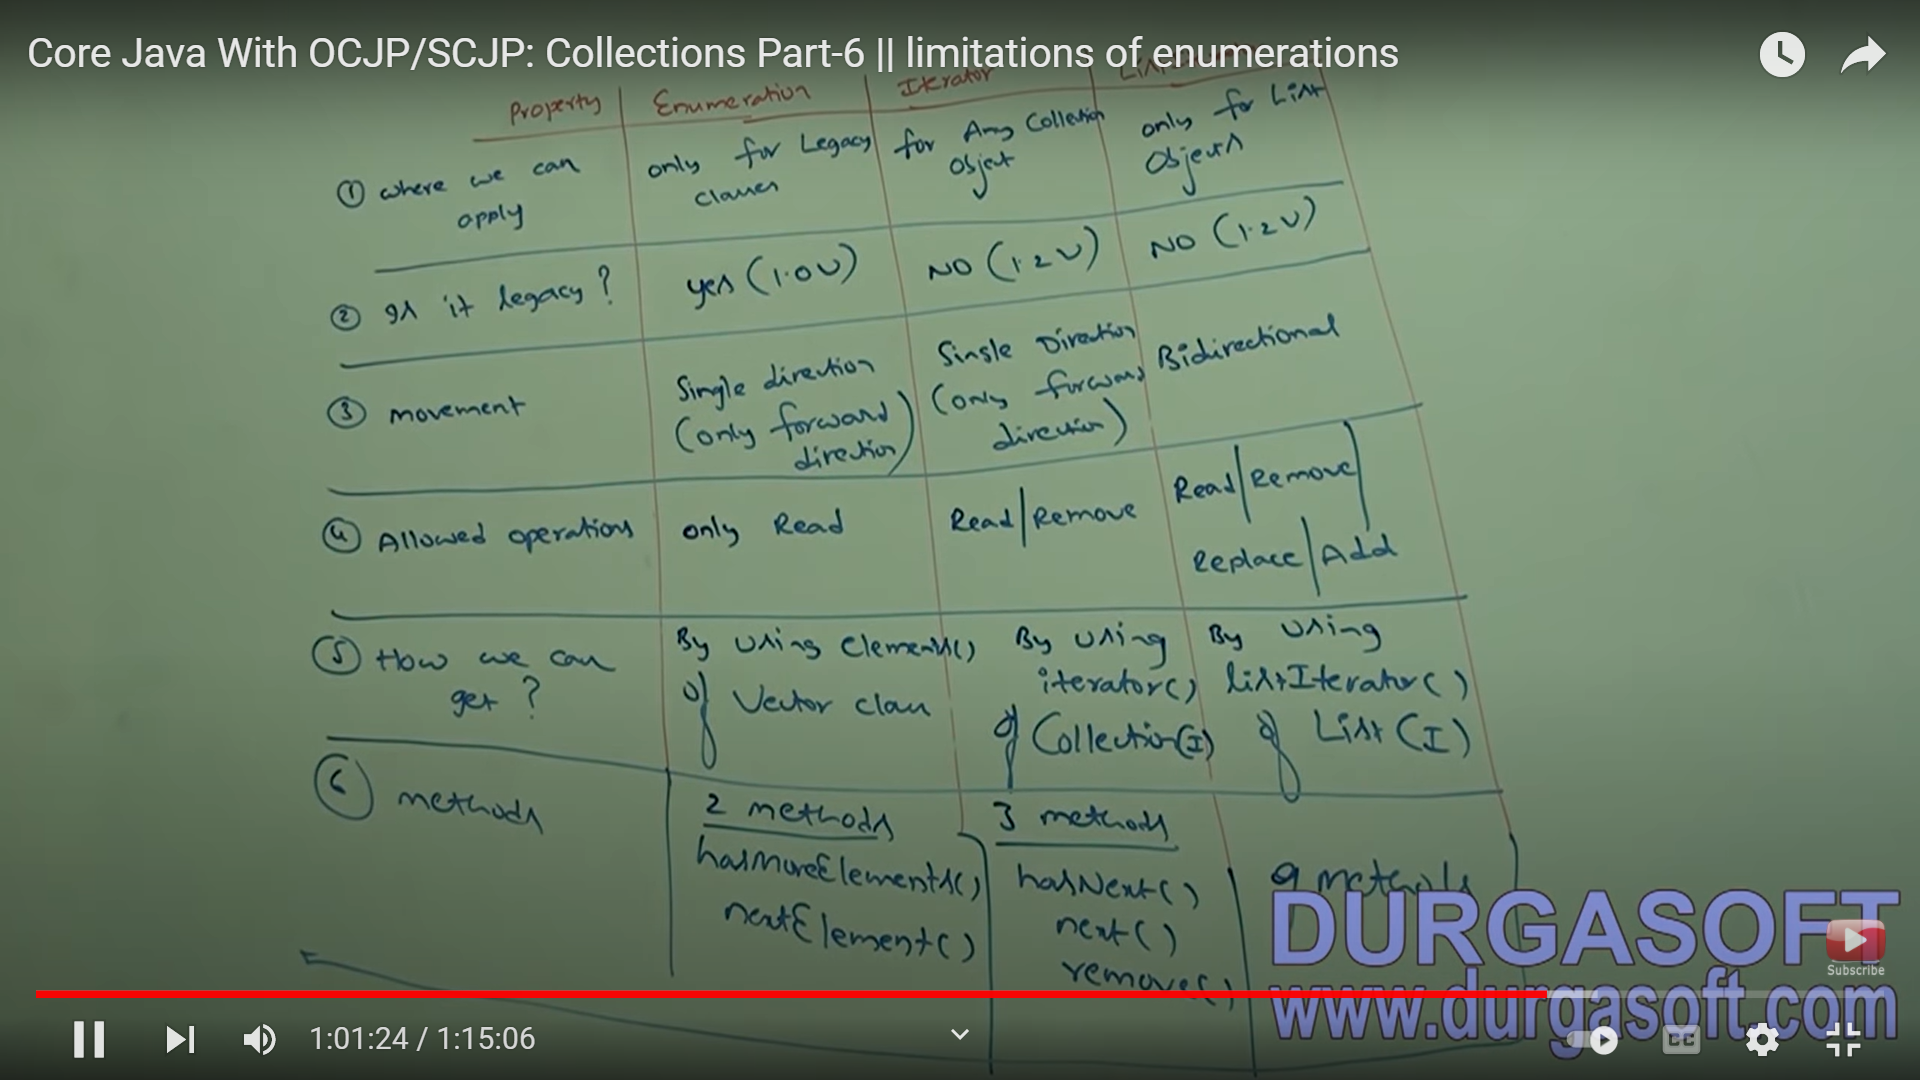 Core Java With OCJP/SCJP: Collections Part-6 || limitations of enumerations
Property Enumeration Iterator
① where we can apply
only for Legacy classes
for Any Collection Object
only for List Objects
② Is it legacy?
yes (1.0 V)
NO (1.2 V)
NO (1.2 V)
③ movement
Single direction
(only forward
direction)
Single Direction
(only forward
direction)
Bidirectional
④ Allowed operations
only Read
Read/Remove
Read/Remove/
Replace/Add
⑤ How we can
get?
By using elements()
of Vector class
By using
iterator()
of Collection(I)
By using
listIterator()
of List (I)
⑥ methods
2 methods
hasMoreElements()
nextElement()
3 methods
hasNext()
next()
remove()
9 methods
DURGASOFT
www.durgasoft.com
Subscribe
1:01:24 / 1:15:06
CC